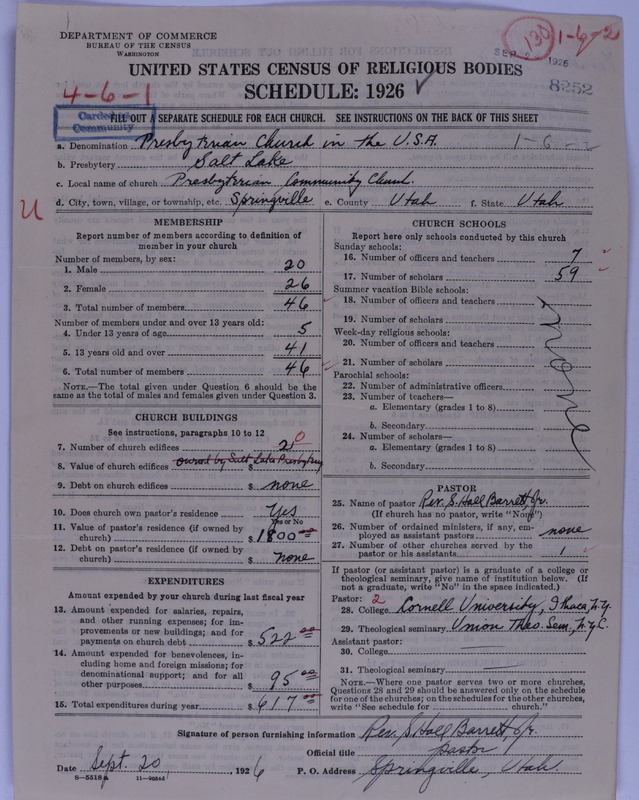 DEPARTMENT OF COMMERCE
BUREAU OF THE CENSUS
WASHINGTON
130
1-6-2
SEP 1926
UNITED STATES CENSUS OF RELIGIOUS BODIES
SCHEDULE: 1926
8252
4-6-1
Carded
Community
FILL OUT A SEPARATE SCHEDULE FOR EACH CHURCH. SEE INSTRUCTIONS ON THE BACK OF THIS SHEET
a. Denomination Presbyterian Church in the U.S.A. 1-6-2
b. Presbytery Salt Lake
c. Local name of church Presbyterian Community Church.
d. City, town, village, or township, etc. Springville e. County Utah f. State Utah
U
MEMBERSHIP
Report number of members according to definition of
member in your church
Number of members, by sex:
1. Male 20
2. Female 26
3. Total number of members 46
Number of members under and over 13 years old:
4. Under 13 years of age 5
5. 13 years old and over 41
6. Total number of members 46
NOTE.—The total given under Question 6 should be
the same as the total of males and females given under Question 3.
CHURCH BUILDINGS
See instructions, paragraphs 10 to 12
7. Number of church edifices 2 0
8. Value of church edifices owned by Salt Lake Presbytery $
9. Debt on church edifices $ none
10. Does church own pastor's residence Yes
Yes or No
11. Value of pastor's residence (if owned by
church) $ 1800.00
12. Debt on pastor's residence (if owned by
church) $ none
EXPENDITURES
Amount expended by your church during last fiscal year
13. Amount expended for salaries, repairs,
and other running expenses; for im-
provements or new buildings; and for
payments on church debt $ 522.00
14. Amount expended for benevolences, in-
cluding home and foreign missions; for
denominational support; and for all
other purposes $ 95.00
15. Total expenditures during year $ 617.00
CHURCH SCHOOLS
Report here only schools conducted by this church
Sunday schools:
16. Number of officers and teachers 7
17. Number of scholars 59
Summer vacation Bible schools:
18. Number of officers and teachers
19. Number of scholars
Week-day religious schools:
20. Number of officers and teachers
21. Number of scholars
Parochial schools:
22. Number of administrative officers
23. Number of teachers—
a. Elementary (grades 1 to 8)
b. Secondary
24. Number of scholars—
a. Elementary (grades 1 to 8)
b. Secondary
none
PASTOR
25. Name of pastor Rev. S. Hall Barrett, Jr.
(If church has no pastor, write "None")
26. Number of ordained ministers, if any, em-
ployed as assistant pastors none
27. Number of other churches served by the
pastor or his assistants 1
If pastor (or assistant pastor) is a graduate of a college or
theological seminary, give name of institution below. (If
not a graduate, write "No" in the space indicated.)
Pastor: 2
28. College Cornell University, Ithaca, N.Y.
29. Theological seminary Union Theo. Sem., N.Y.C.
Assistant pastor:
30. College
31. Theological seminary
NOTE.—Where one pastor serves two or more churches,
Questions 28 and 29 should be answered only on the schedule
for one of the churches; on the schedules for the other churches,
write "See schedule for church."
Signature of person furnishing information Rev. S. Hall Barrett, Jr.
Official title Pastor
Date Sept. 20, 1926 P. O. Address Springville, Utah.